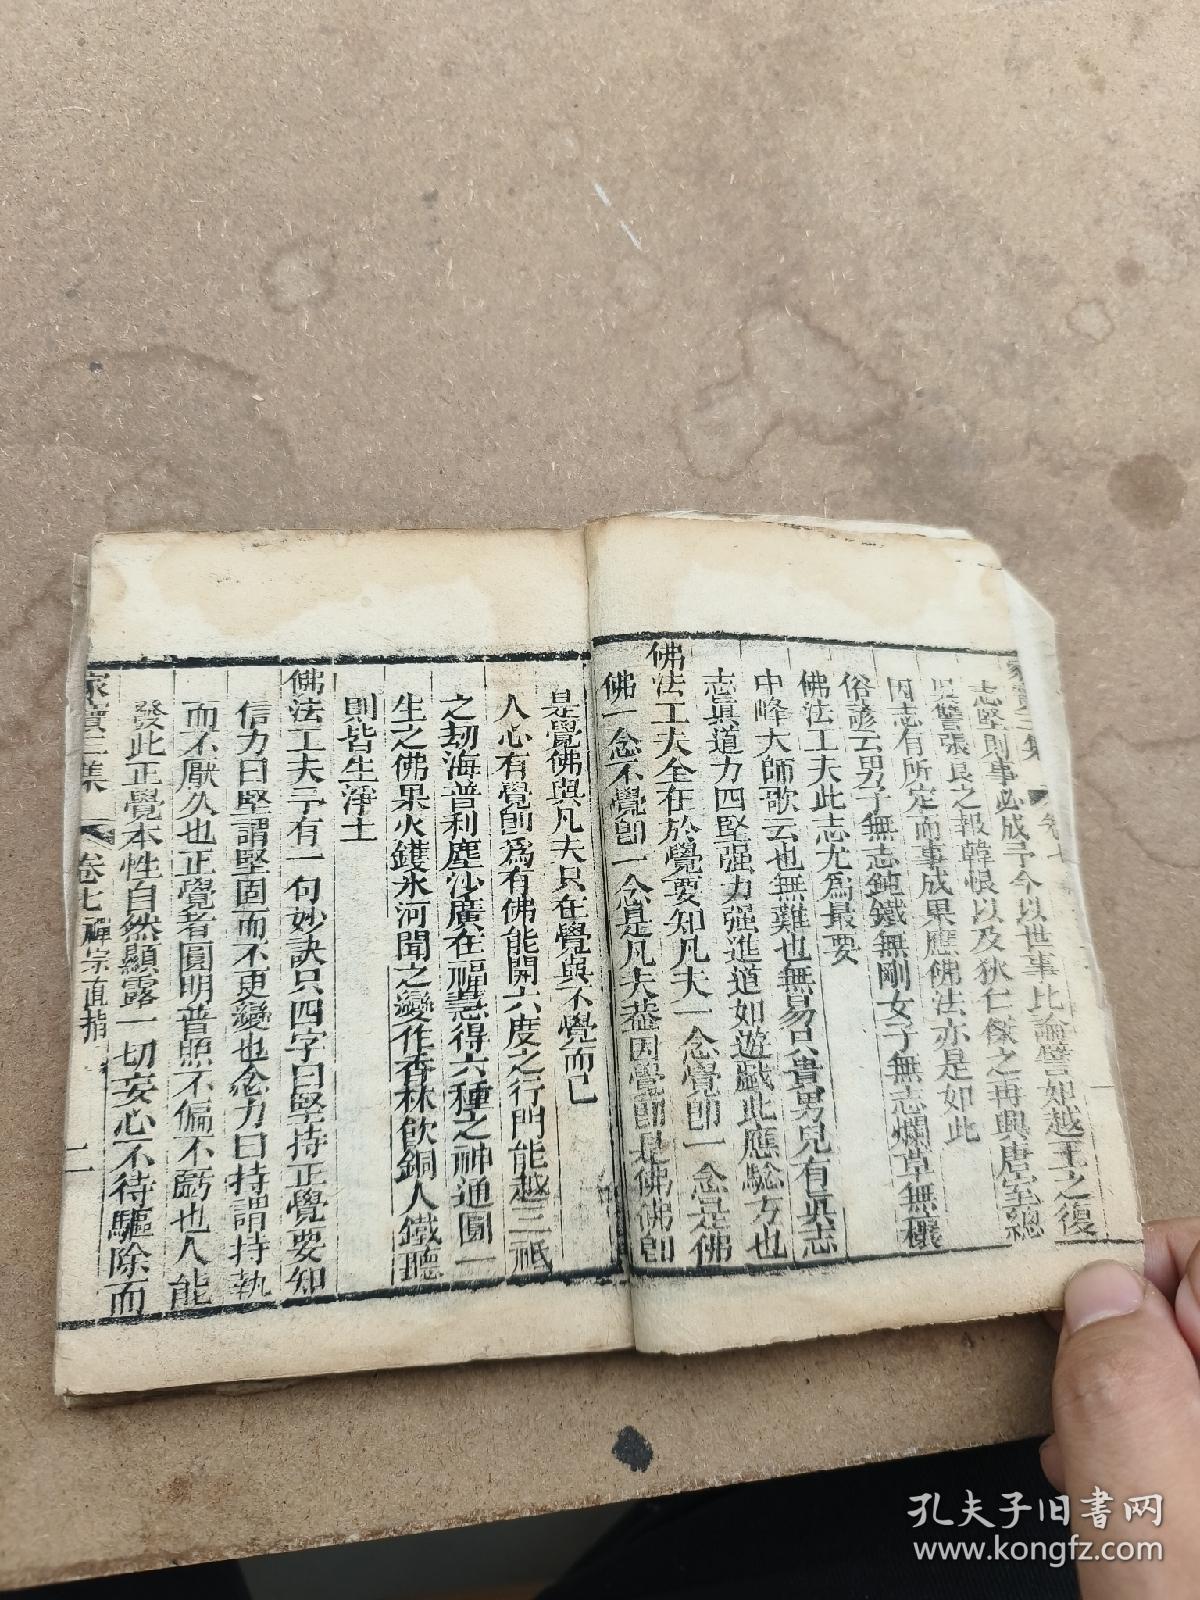 志堅則事必成予今以世事比論譬如越王之復
吳讐張良之報韓恨以及狄仁傑之再興唐室總
因志有所定而事成果應佛法亦是如此
俗諺云男子無志鈍鐵無剛女子無志爛草無穰
佛法工夫此志尤爲最要
中峰大師歌云也無難也無易只貴男兒有眞志
志眞道力四堅强力强進道如遊戲此應騐方也
佛法工夫全在於覺要知凡夫一念覺卽一念是佛
佛一念不覺卽一念是凡夫葢因覺卽是佛佛卽
是覺佛與凡夫只在覺與不覺而已
人心有覺卽爲有佛能開六度之行門能越三祇
之刧海普利塵沙廣在福慧得六種之神通圓一
生之佛果火鑊氷河聞之變作香林飲銅人鐵聽
則皆生淨土
佛法工夫予有一句妙訣只四字曰堅持正覺要知
信力曰堅謂堅固而不更變也念力曰持謂持執
而不厭久也正覺者圓明普照不偏不虧也人能
發此正覺本性自然顯露一切妄心不待驅除而
家寶三集 卷七 禪宗直指 二
孔夫子旧书网
www.kongfz.com